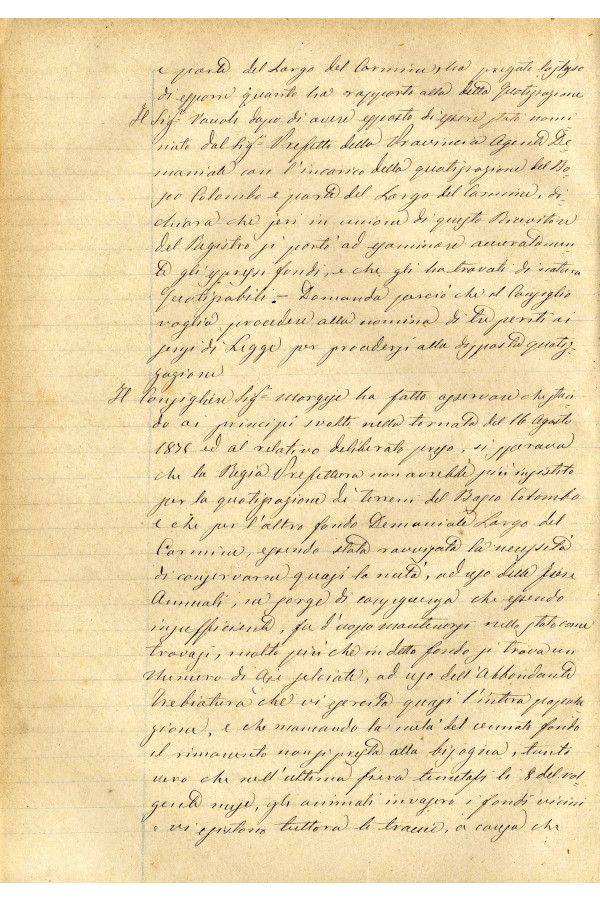 e parte del Largo del Carmine, ha pregato lo stesso
di esporre quanto ha rapporto alla detta quotizzazione
Il Sig.r dopo di avere esposto di essere stato nomi
nato dal Sig.r Prefetto della Provincia Agente De
maniale con l'incarico della quotizzazione del Bo
sco Colombo e parte del Largo del Carmine, di-
chiara che jeri in unione di questo Ricevitore
del Registro si portò ad esaminare accuratamen
te gli espressi fondi, e che gli ha trovati di natura
quotizzabili. — Domanda perciò che il Consiglio
voglia procedere alla nomina di tre periti ai
sensi di Legge per procedersi alla disposta quotiz-
zazione
Il Consigliere Sig.r Morgese ha fatto osservare che
do ai principi svolti nella tornata del 16 Agosto
1876 ed al relativo deliberato preso, si sperava
che la Regia Prefettura non avrebbe più insistito
per la quotizzazione di terreni del Bosco Colombo
e che per l'altro fondo Demaniale Largo del
Carmine, essendo stata ravvisata la necessità
di conservarne quasi la metà, ad uso delle fiere
Annuali, ne sorge di conseguenza che essendo
insufficiente, fa d'uopo mantenersi nello stato come
trovasi, molto più che in detto fondo si trova un
numero di Aje selciate, ad uso dell'Abbondante
Trebiatura che vi esercita quasi l'intera popola
zione, e che mancando la metà del cennato fondo
il rimanente non si presta alla bisogna, tanto
vero che nell'ultima fiera tenutasi li 8 del vol-
gente mese, gli animali invasero i fondi vicini
e vi esistono tuttora le traccie, a causa che